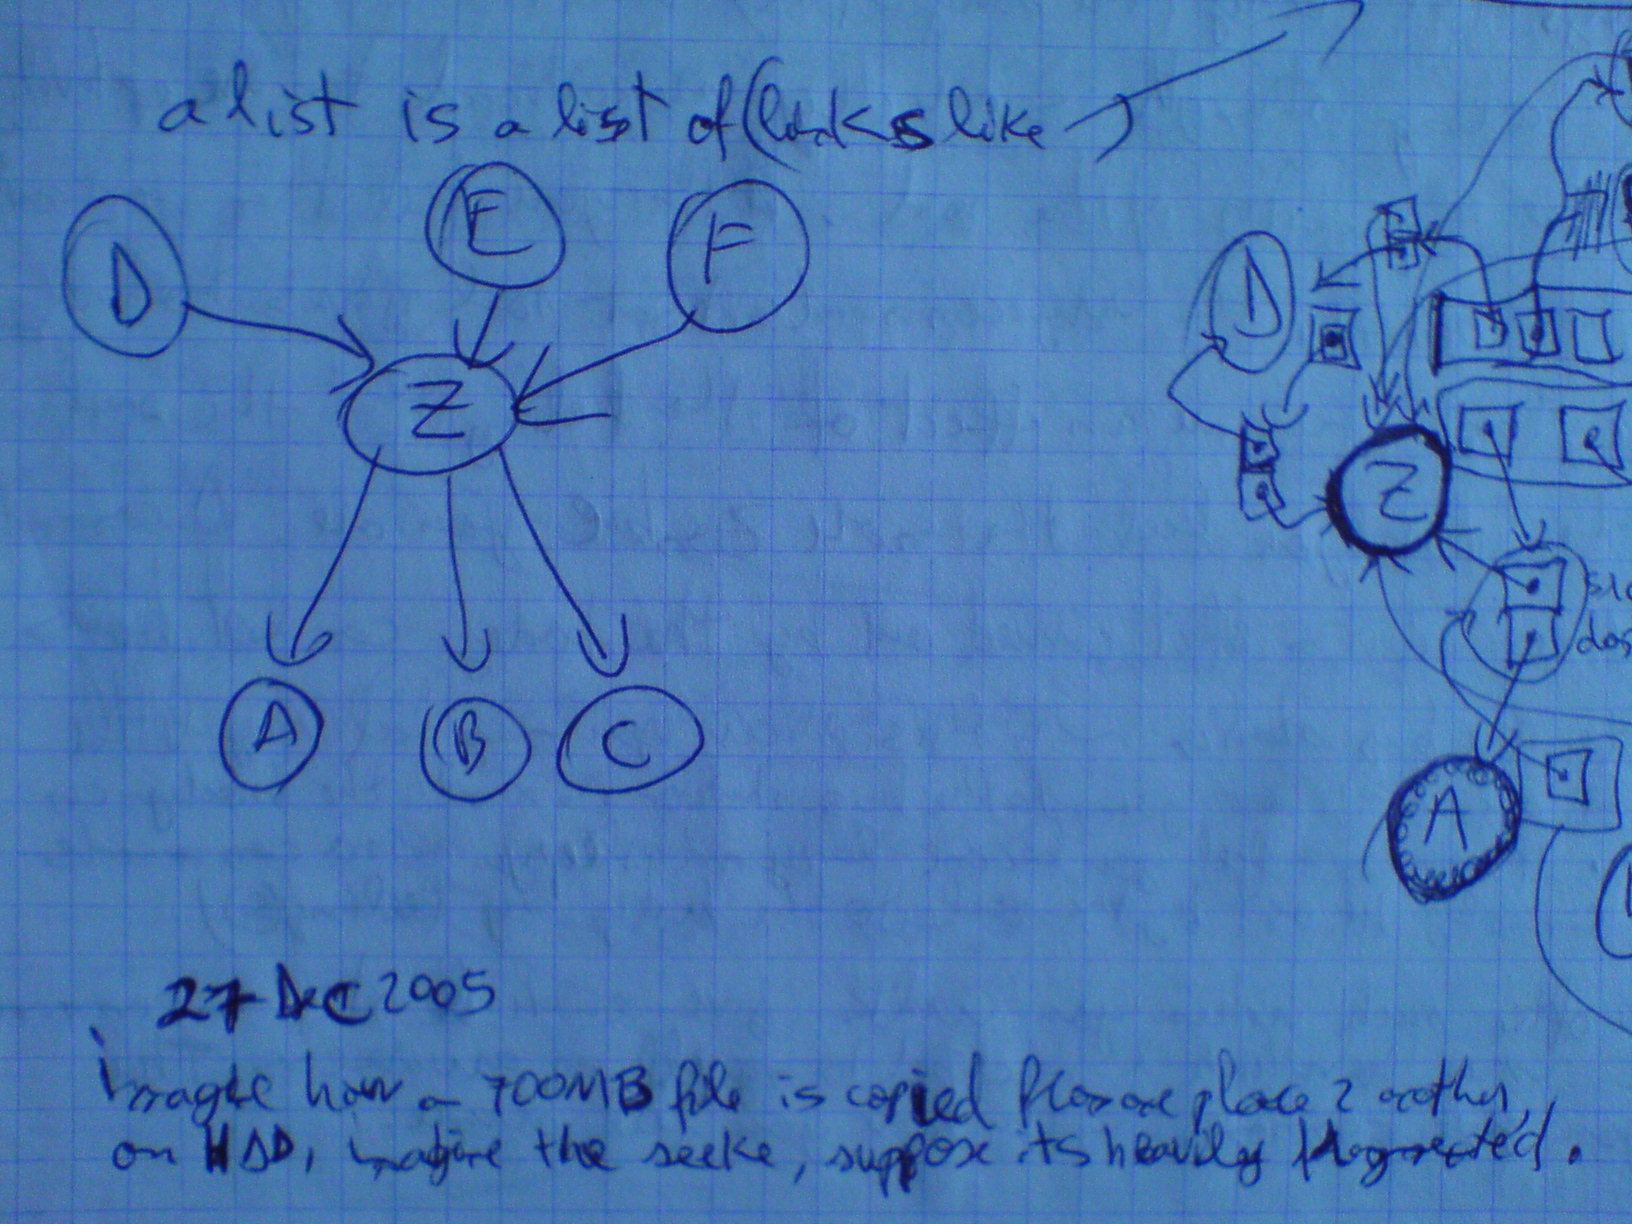 a list is a list of (looks like →)
D E F
Z
A B C
D
Z
A
27 Dec 2005
imagine how a 700MB file is copied from one place 2 another,
on HDD, imagine the seeks, suppose its heavily fragmented.